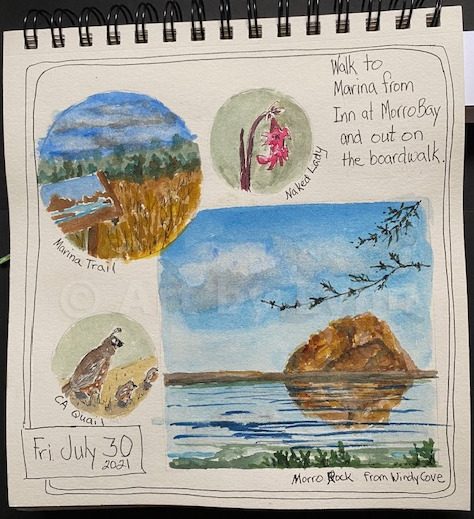 Walk to
Marina from
Inn at Morro Bay
and out on
the boardwalk.
Naked Lady
Marina Trail
CA Quail
Fri July 30
2021
Morro Rock from Windy Cove